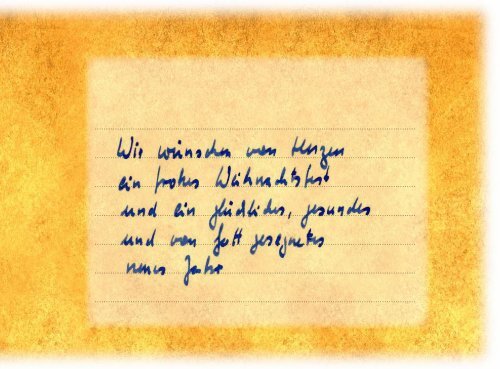 Wir wünschen von Herzen
ein frohes Weihnachtsfest
und ein glückliches, gesundes
und von Gott gesegnetes
neues Jahr